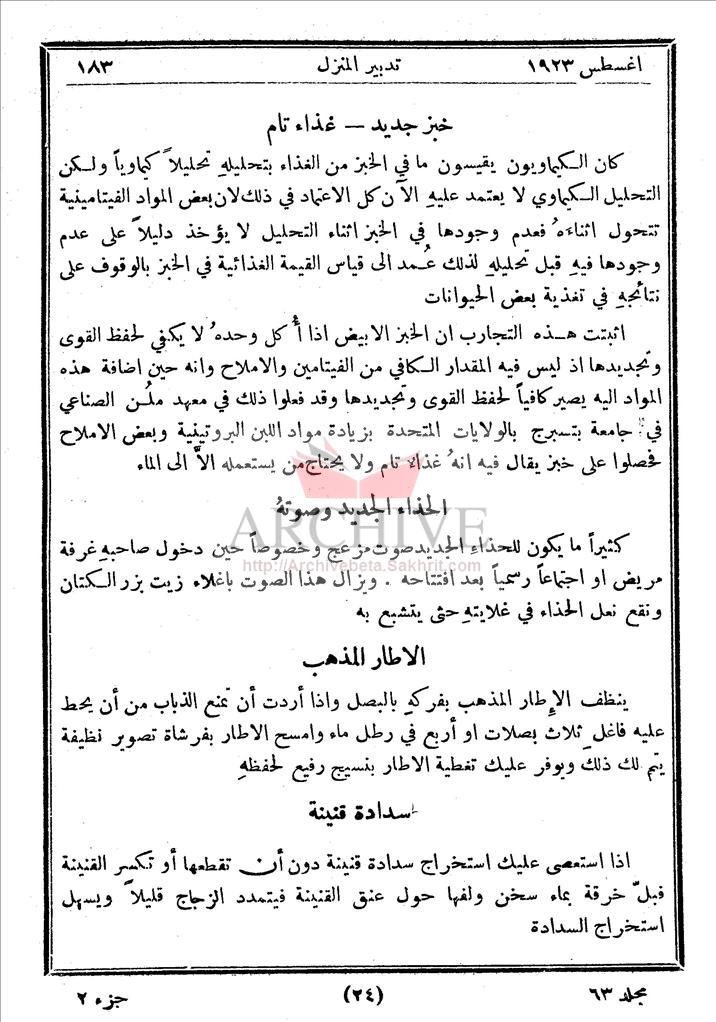 اغسطس ١٩٢٣ تدبير المنزل ١٨٣
خبز جديد — غذاء تام
كان الكيماويون يقيسون ما في الخبز من الغذاء بتحليلهِ تحليلاً كيماوياً ولكن
التحليل الكيماوي لا يعتمد عليهِ الآن كل الاعتماد في ذلك لان بعض المواد الفيتامينية
تتحول اثناءَهُ فعدم وجودها في الخبز اثناء التحليل لا يؤخذ دليلاً على عدم
وجودها فيهِ قبل تحليلهِ لذلك عُمد الى قياس القيمة الغذائية في الخبز بالوقوف على
نتائجهِ في تغذية بعض الحيوانات
اثبتت هذه التجارب ان الخبز الابيض اذا أُكل وحدهُ لا يكفي لحفظ القوى
وتجديدها اذ ليس فيه المقدار الكافي من الفيتامين والاملاح وانه حين اضافة هذه
المواد اليه يصير كافياً لحفظ القوى وتجديدها وقد فعلوا ذلك في معهد ملُن الصناعي
في جامعة بتسبرج بالولايات المتحدة بزيادة مواد اللبن البروتينية وبعض الاملاح
فحصلوا على خبز يقال فيه انهُ غذاء تام ولا يحتاج من يستعمله الاَّ الى الماء
الحذاء الجديد وصوتهُ
ARCHIVE
كثيراً ما يكون للحذاءِ الجديد صوت مزعج وخصوصاً حين دخول صاحبهِ غرفة
http://Archivebeta.Sakhrit.com
مريض او اجتماعاً رسمياً بعد افتتاحه . ويزال هذا الصوت باغلاء زيت بزر الكتان
ونقع نعل الحذاء في غلايتهِ حتى يتشبع به
الاطار المذهب
ينظف الإِطار المذهب بفركهِ بالبصل واذا أردت أن تمنع الذباب من أن يحط
عليه فاغلِ ثلاث بصلات او أربع في رطل ماء وامسح الاطار بفرشاة تصوير نظيفة
يتم لك ذلك ويوفر عليك تغطية الاطار بنسيج رفيع لحفظهِ
سدادة قنينة
اذا استعصى عليك استخراج سدادة قنينة دون أن تقطعها أو تكسر القنينة
فبلّ خرقة بماء سخن ولفها حول عنق القنينة فيتمدد الزجاج قليلاً ويسهل
استخراج السدادة
مجلد ٦٣ (٢٤) جزء ٢